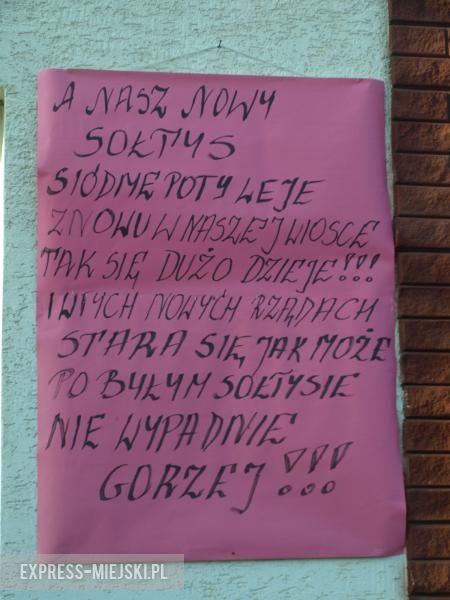 A NASZ NOWY
SOŁTYS
SIÓDME POTY LEJE
ZNOWU W NASZEJ WIOSCE
TAK SIĘ DUŻO DZIEJE!!!
I W TYCH NOWYCH RZĄDACH
STARA SIĘ, JAK MOŻE
PO BYŁYM SOŁTYSIE
NIE WYPADNIE
GORZEJ!!!
EXPRESS-MIEJSKI.PL